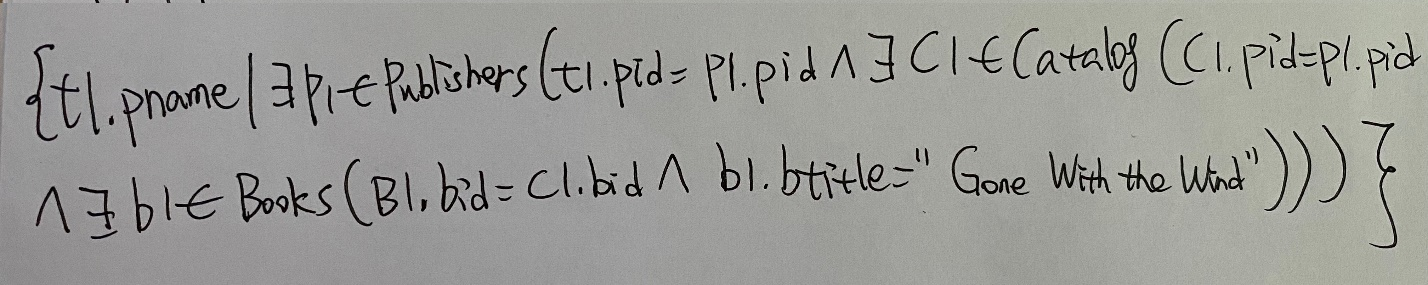 {t1.pname | ∃p1∈Publishers(t1.pid = P1.pid ∧ ∃ C1∈Catalog (C1.pid=p1.pid
∧ ∃ b1∈ Books (B1.bid = C1.bid ∧ b1.btitle=" Gone With the Wind")))}